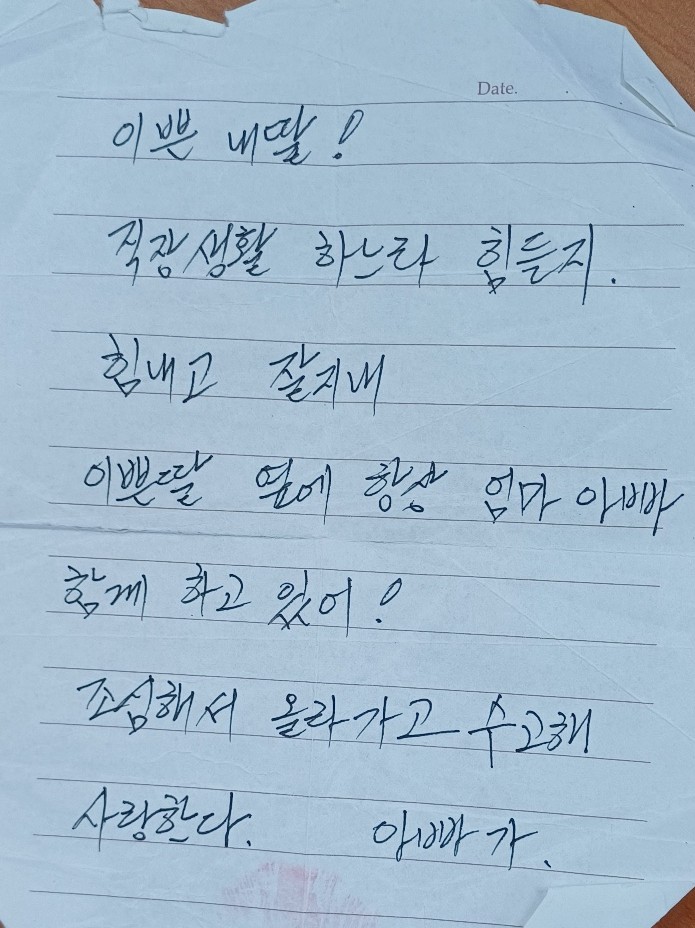 Date.
이쁜 내딸!
직장생활 하느라 힘든지.
힘내고 잘지내
이쁜딸 옆에 항상 엄마 아빠
함께 하고 있어!
조심해서 올라가고 수고해
사랑한다. 아빠가.